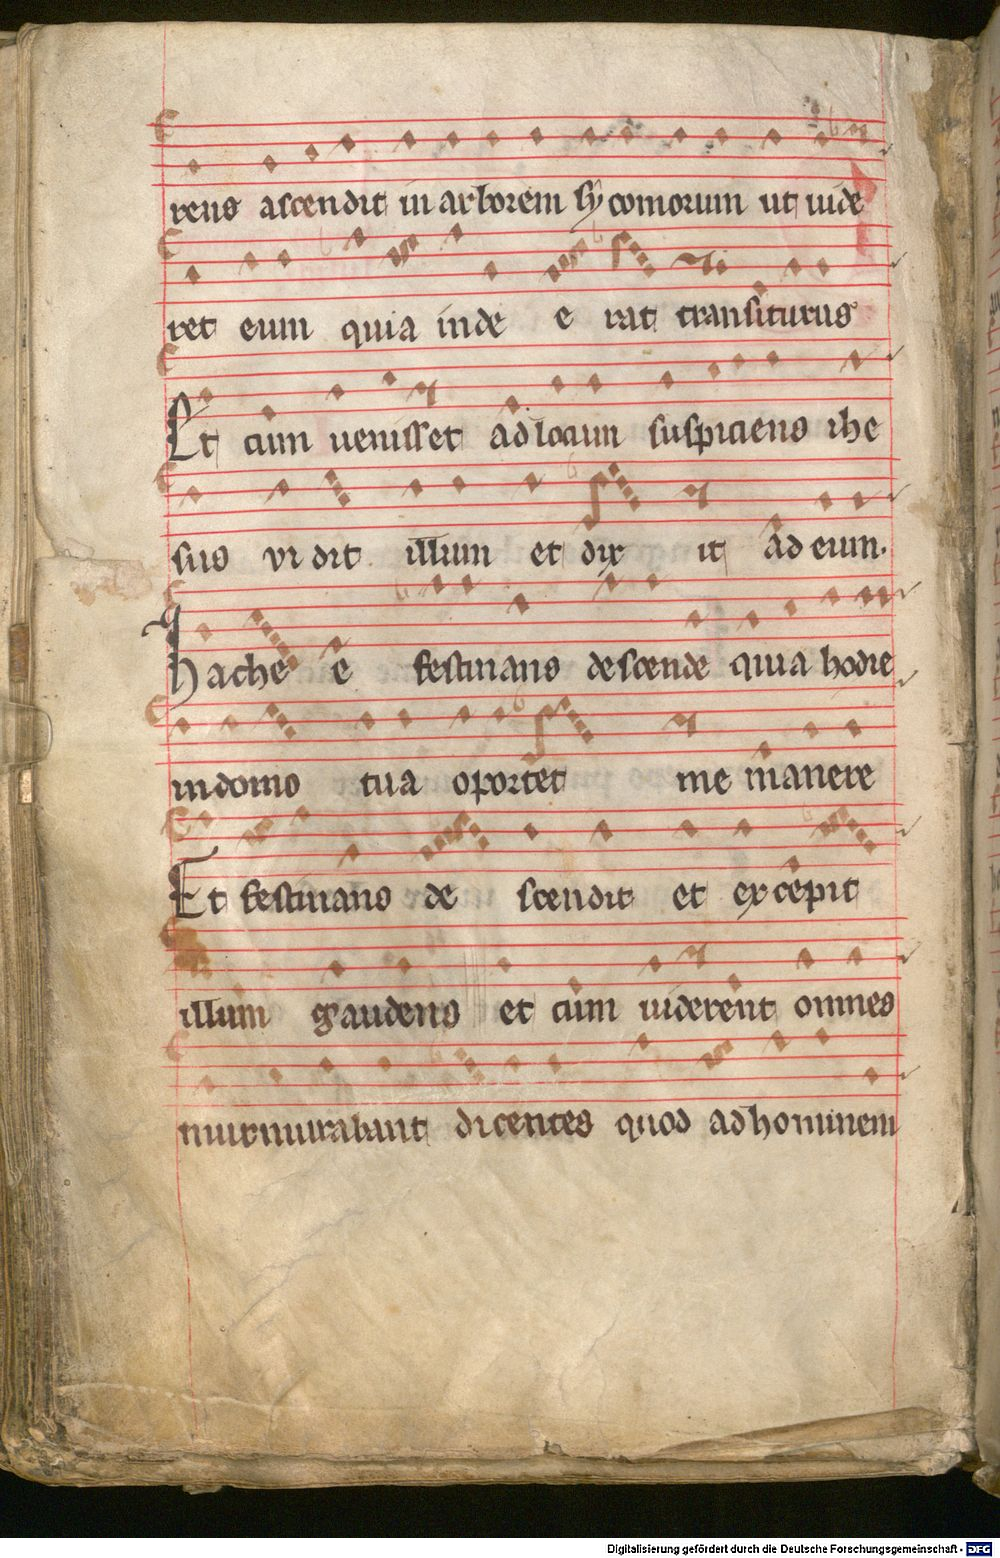 rens ascendit in arborem sycomorum ut uide
ret eum quia inde e rat transiturus
Et cum uenisset ad locum suspiciens ihe
sus vi dit illum et dix it ad eum.
Zache e festinans descende quia hodie
in domo tua oportet me manere
Et festinans de scendit et excepit
illum gaudens et cum uiderent omnes
murmurabant dicentes quod ad hominem
Digitalisierung gefördert durch die Deutsche Forschungsgemeinschaft - DFG